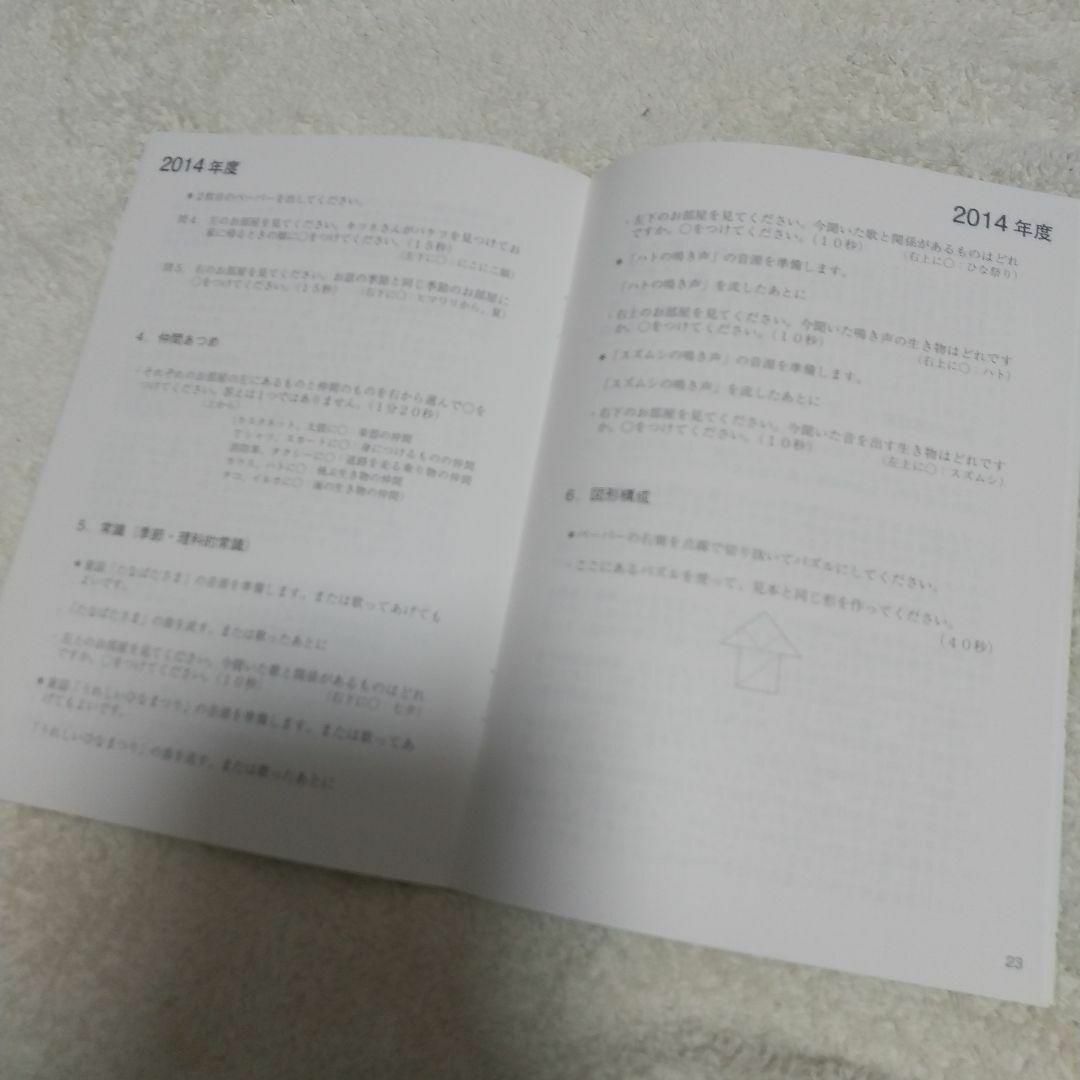 2014年度
＊2枚目のペーパーを出してください。
問4. 左のお部屋を見てください。キツネさんがバケツを見つけてお
家に帰るときの顔に〇をつけてください。(15秒)
(左下に〇:にこにこ顔)
問5. 右のお部屋を見てください。お話の季節と同じ季節のお部屋に
〇をつけてください。(15秒) (右下に〇:ヒマワリから、夏)
4. 仲間あつめ
・それぞれのお部屋の左にあるものと仲間のものを右から選んで〇を
つけてください。答えは1つではありません。(1分20秒)
(上から)
(カスタネット、太鼓に〇 楽器の仲間
Tシャツ、スカートに〇:身につけるものの仲間
消防車、タクシーに〇:道路を走る乗り物の仲間
カラス、ハトに〇 飛ぶ生き物の仲間
タコ、イルカに〇:海の生き物の仲間)
5. 常識(季節・理科的常識)
＊童謡「たなばたさま」の音源を準備します。または歌ってあげても
よいです。
「たなばたさま」の曲を流す、または歌ったあとに
・左上のお部屋を見てください。今聞いた歌と関係があるものはどれ
ですか。〇をつけてください。(10秒) (右下に〇 七夕)
＊童謡「うれしいひなまつり」の音源を準備します。または歌ってあ
げてもよいです。
「うれしいひなまつり」の曲を流す、または歌ったあとに
2014年度
・左下のお部屋を見てください。今聞いた歌と関係があるものはどれ
ですか。〇をつけてください。(10秒) (右上に〇:ひな祭り)
＊「ハトの鳴き声」の音源を準備します。
「ハトの鳴き声」を流したあとに
・右上のお部屋を見てください。今聞いた鳴き声の生き物はどれです
か。〇をつけてください。(10秒) (右上に〇:ハト)
＊「スズムシの鳴き声」の音源を準備します。
「スズムシの鳴き声」を流したあとに
・右下のお部屋を見てください。今聞いた音を出す生き物はどれです
か。〇をつけてください。(10秒) (左上に〇:スズムシ)
6. 図形構成
＊ペーパーの右側を点線で切り抜いてパズルにしてください。
・ここにあるパズルを使って、見本と同じ形を作ってください。
(40秒)
23